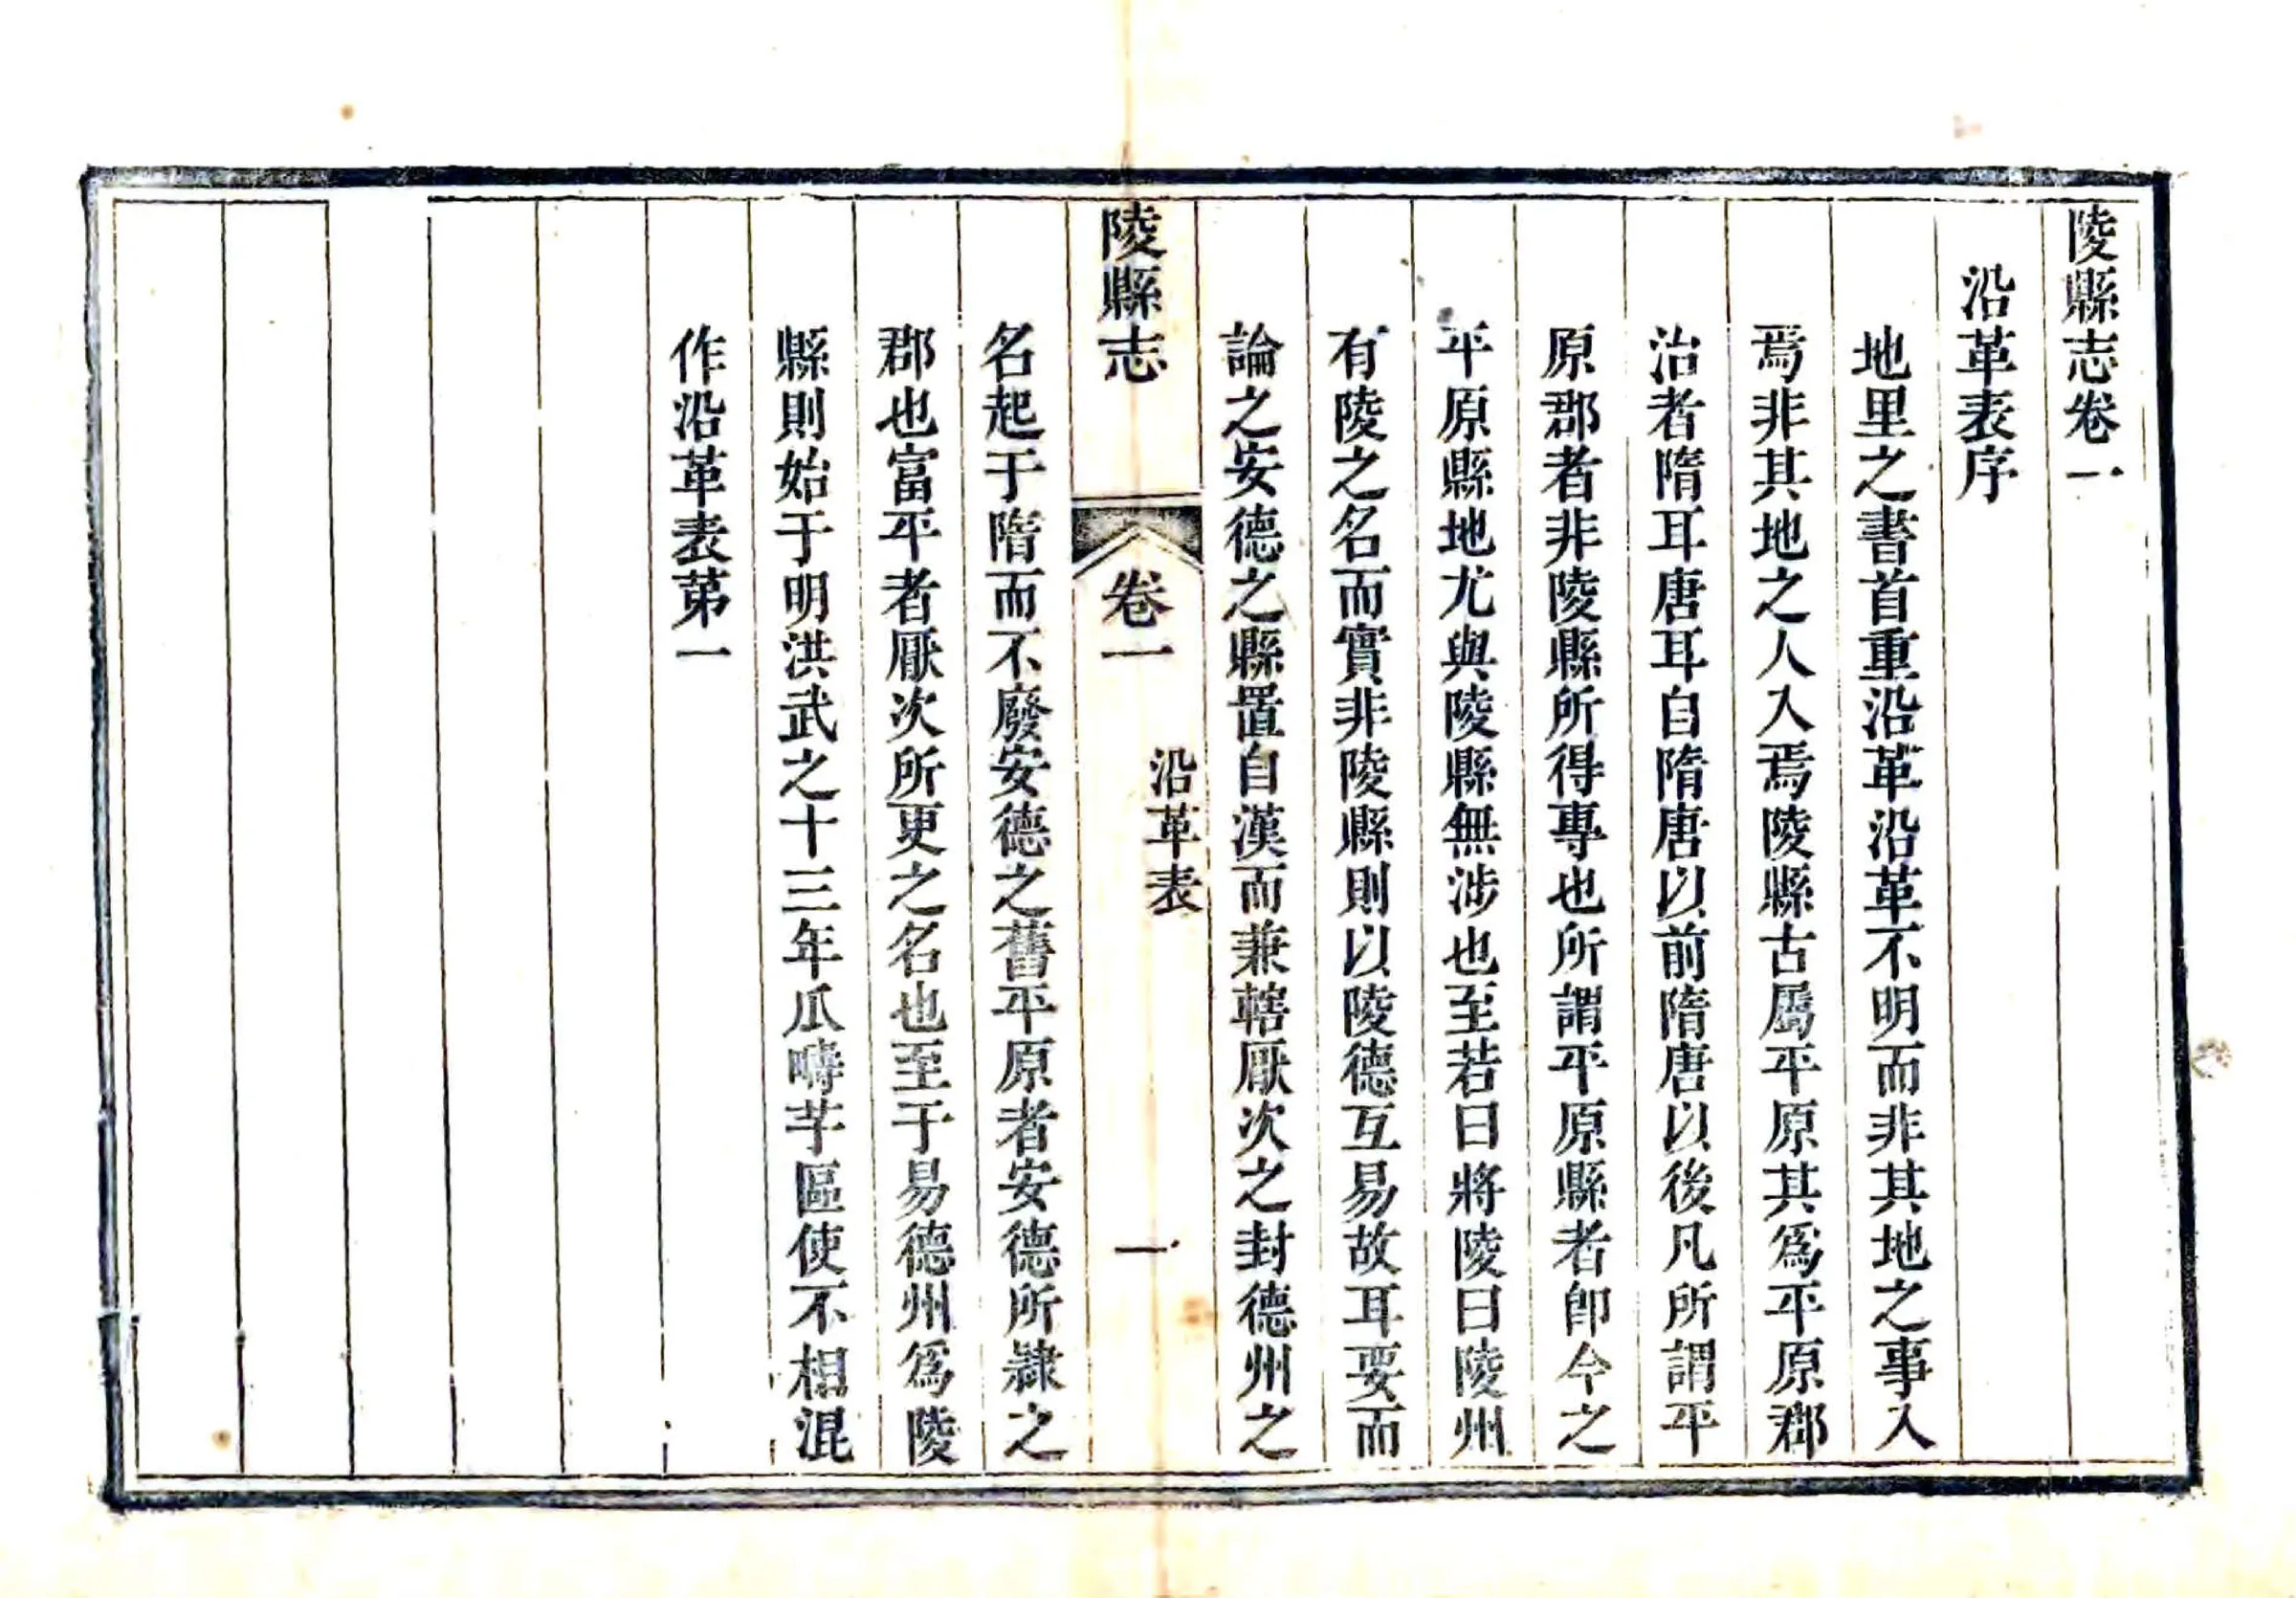 陵縣志卷一
沿革表序
地里之書首重沿革沿革不明而非其地之事入
焉非其地之人入焉陵縣古屬平原其爲平原郡
治者隋耳唐耳自隋唐以前隋唐以後凡所謂平
原郡者非陵縣所得專也所謂平原縣者卽今之
平原縣地尤與陵縣無涉也至若曰將陵曰陵州
有陵之名而實非陵縣則以陵德互易故耳要而
論之安德之縣置自漢而兼轄厭次之封德州之
陵縣志 卷一 沿革表 一
名起于隋而不廢安德之舊平原者安德所隸之
郡也富平者厭次所更之名也至于易德州爲陵
縣則始于明洪武之十三年瓜疇芋區使不相混
作沿革表第一